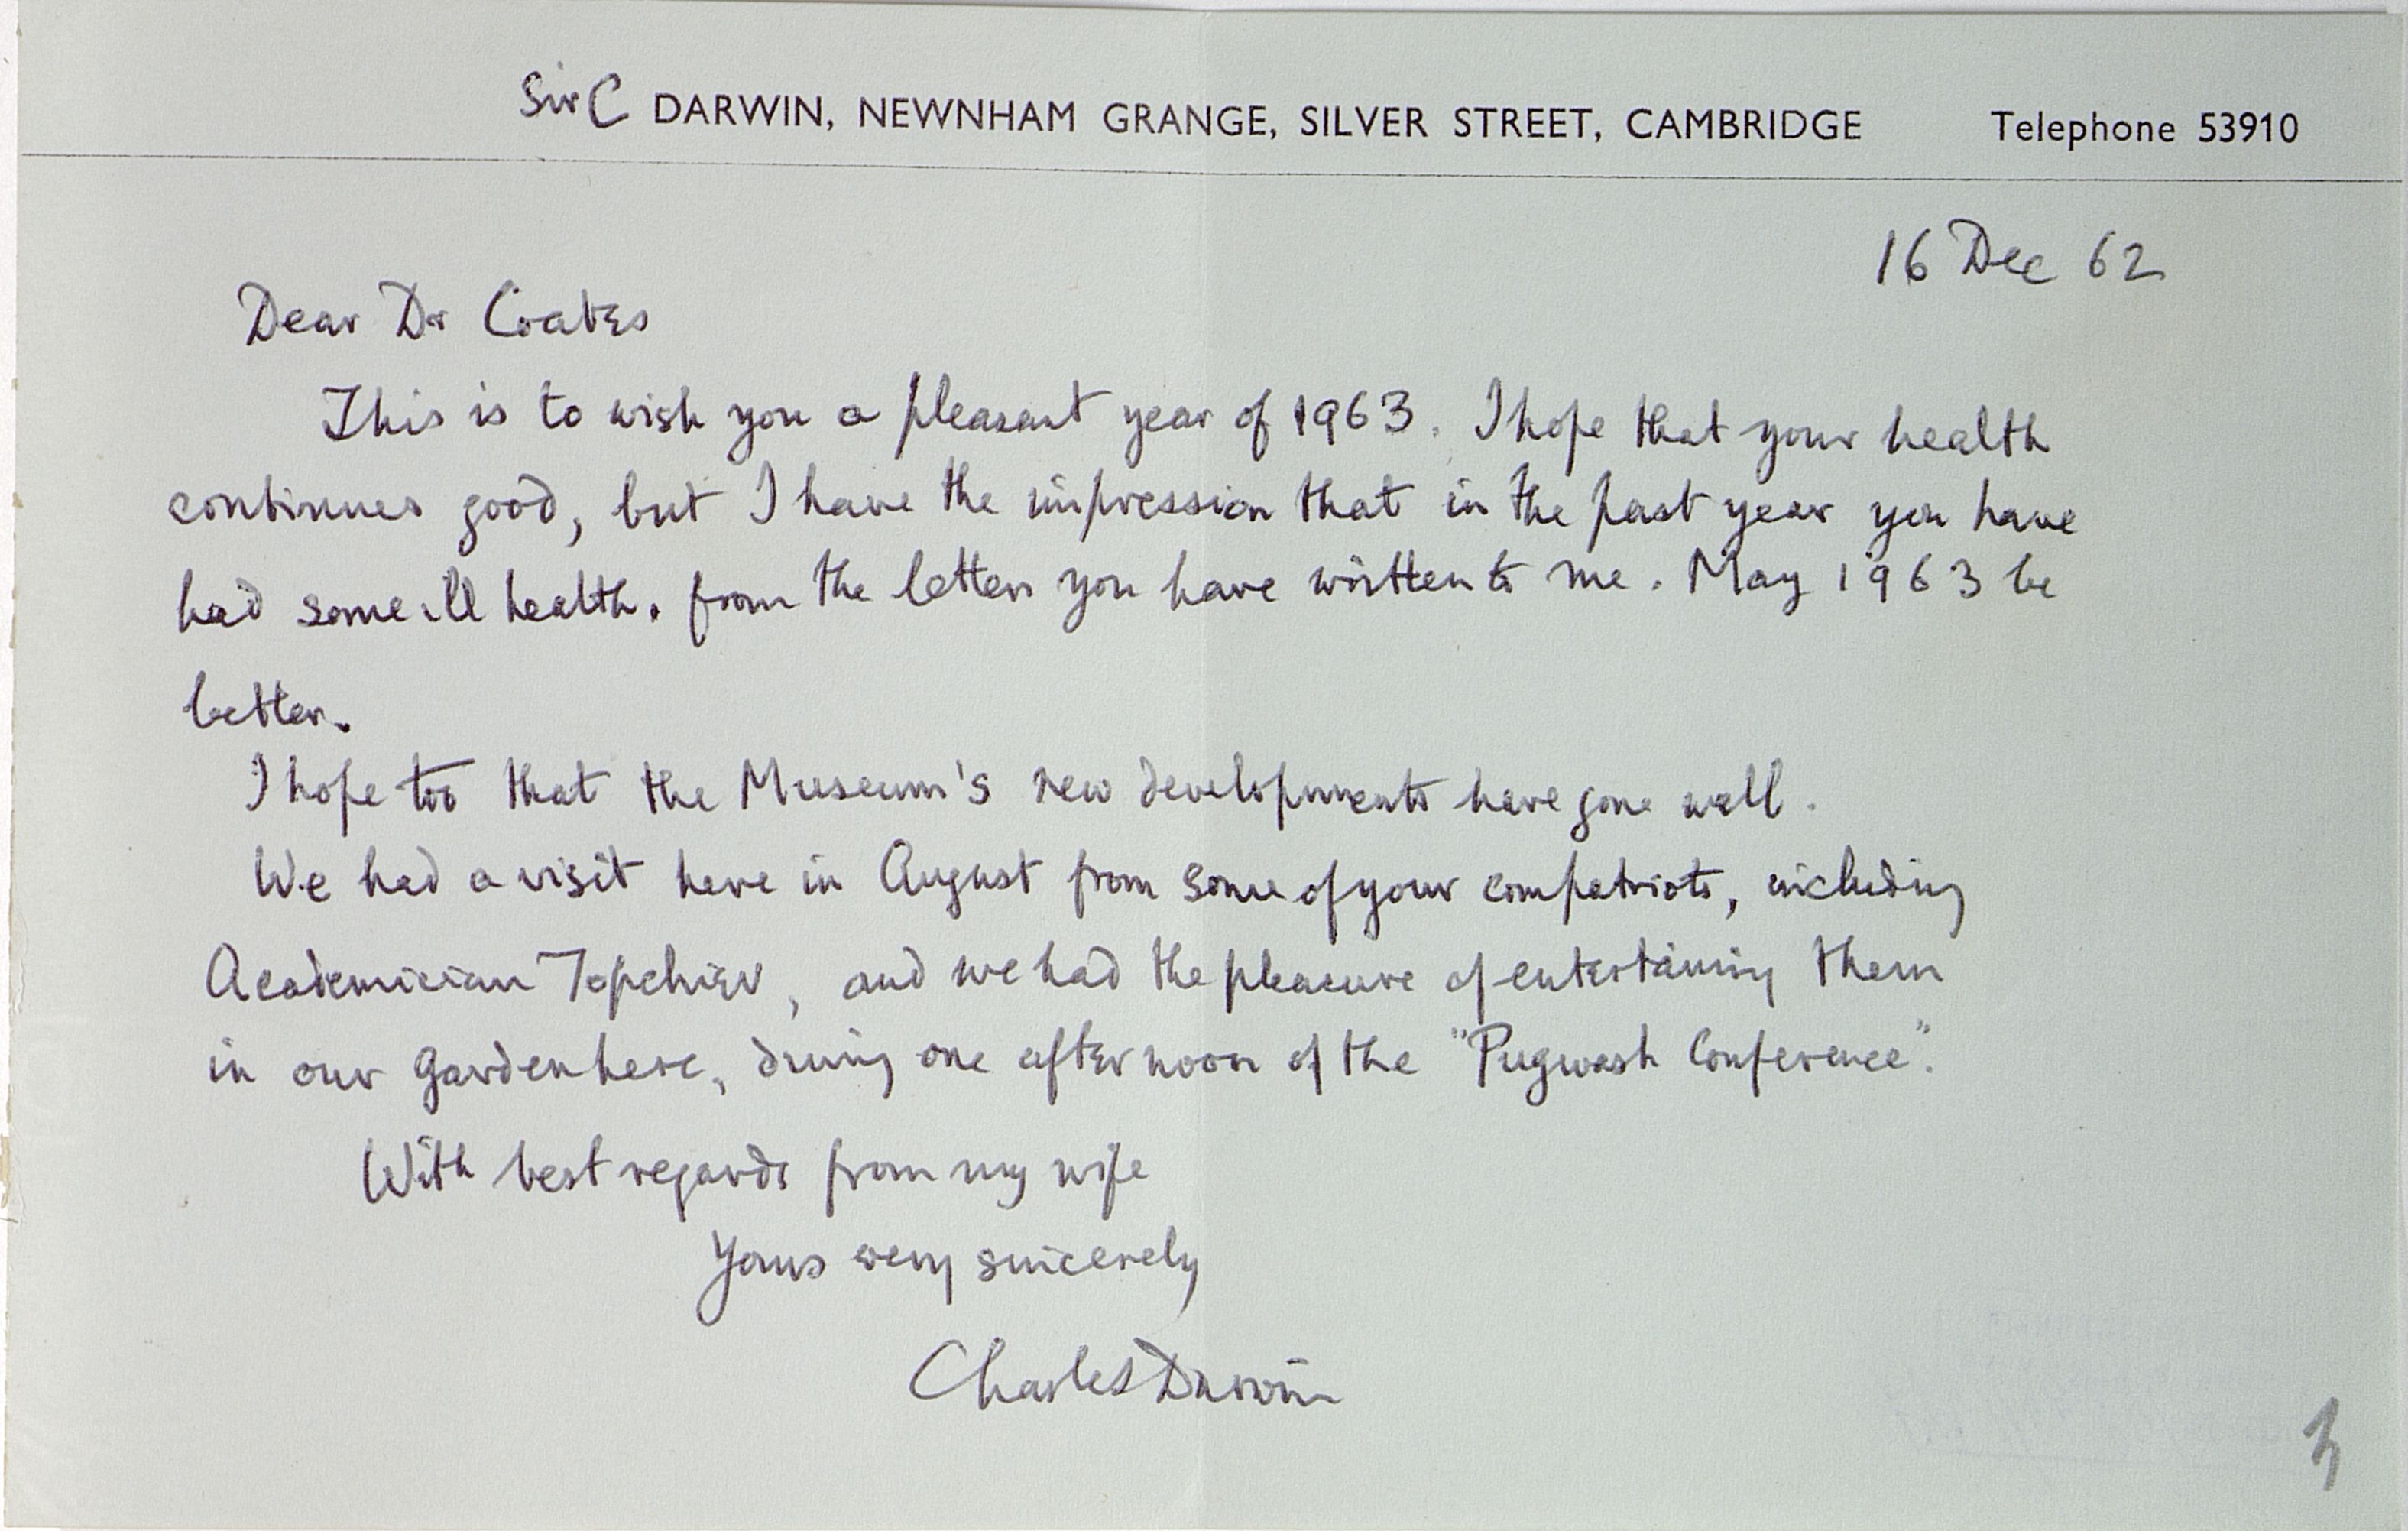 Sir C DARWIN, NEWNHAM GRANGE, SILVER STREET, CAMBRIDGE Telephone 53910
16 Dec 62
Dear Dr Coates
This is to wish you a pleasant year of 1963. I hope that your health
continues good, but I have the impression that in the past year you have
had some ill health, from the letters you have written to me. May 1963 be
better.
I hope too that the Museum's new developments have gone well.
We had a visit here in August from some of your compatriots, including
Academician Topchiev, and we had the pleasure of entertaining them
in our garden here, during one afternoon of the "Pugwash Conference".
With best regards from my wife
Yours very sincerely
Charles Darwin
3